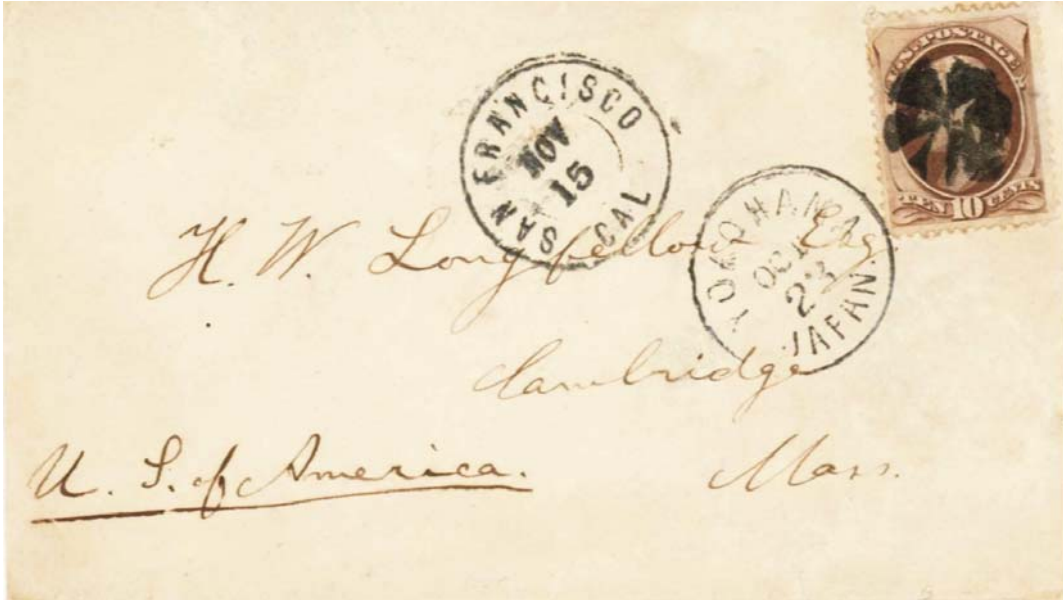 U.S. POSTAGE
TEN 10 CENTS
SAN FRANCISCO
NOV
15
CAL
YOKOHAMA
OCT
23
JAPAN
H. W. Longfellow Esq.
Cambridge
Mass.
U. S. of America.